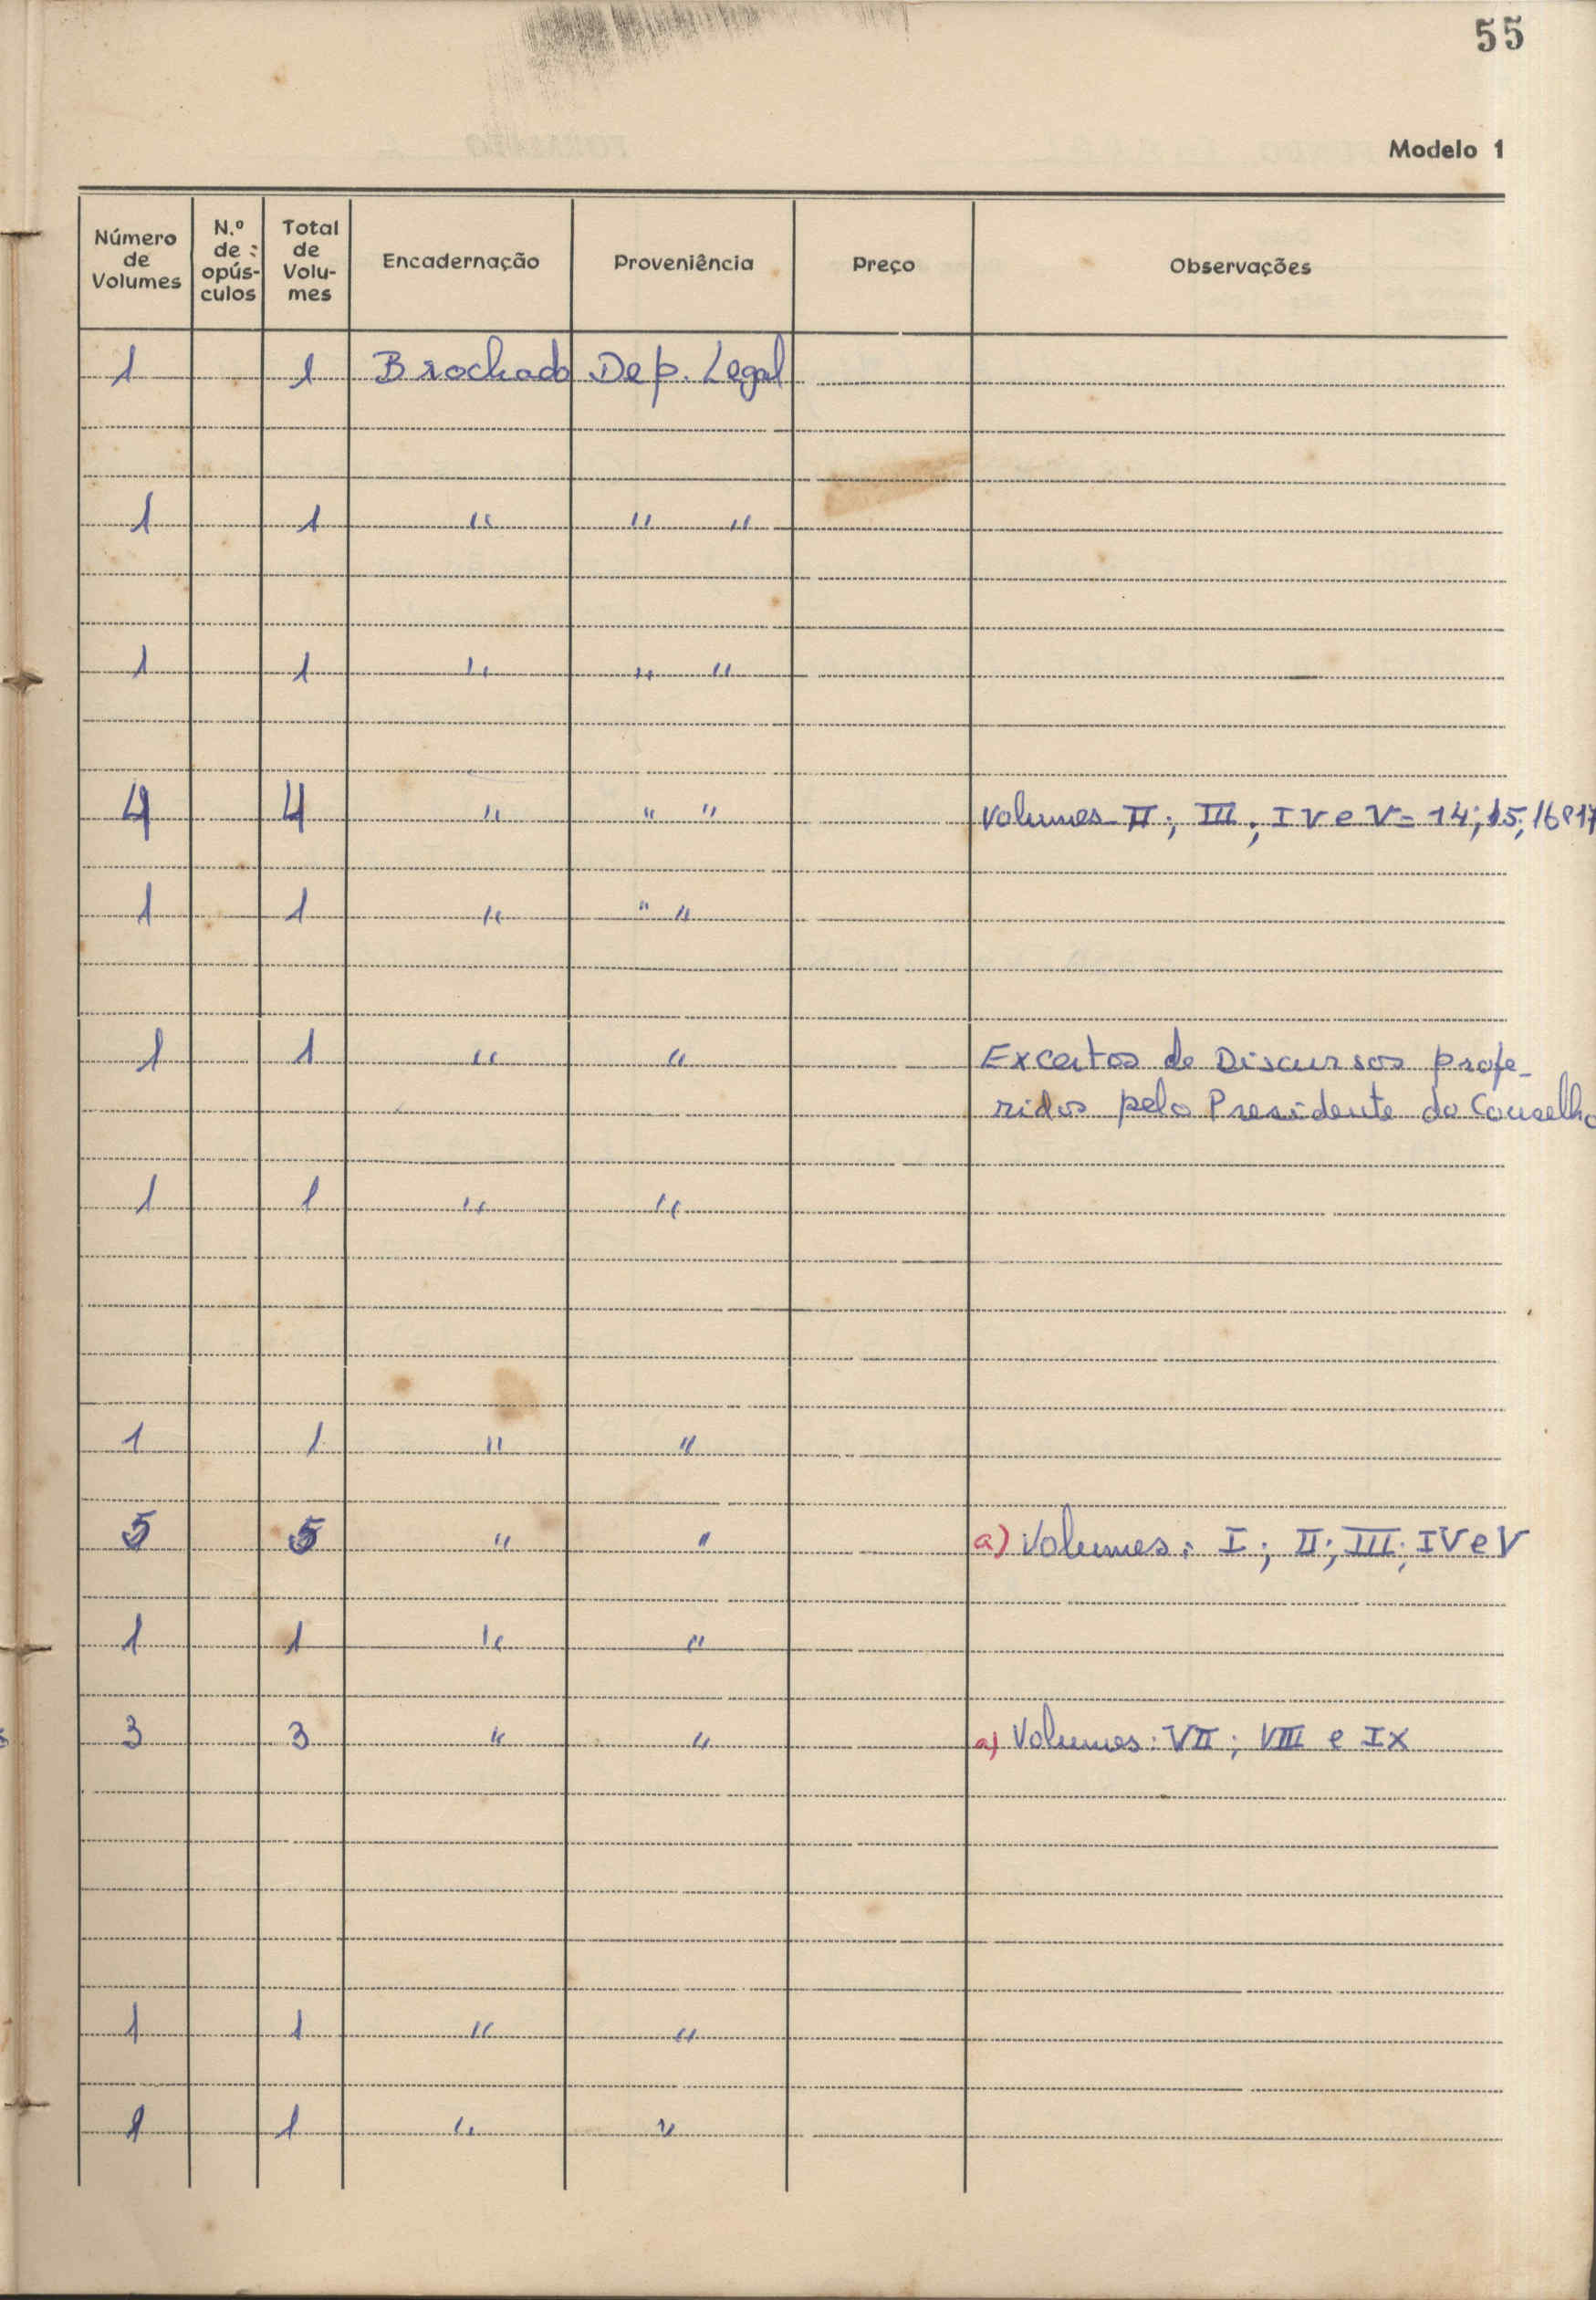 55
Modelo 1
Número de Volumes | N.º de opús-culos | Total de Volu-mes | Encadernação | Proveniência | Preço | Observações
1 1 Brochado Dep. Legal
1 1 " " "
1 1 " " "
4 4 " " " Volumes II; III; IV e V = 14; 15; 16 e 17
1 1 " " "
1 1 " " Excertos de Discursos profe-
ridos pelo Presidente do Conselho
1 1 " "
1 1 " "
5 5 " " a) Volumes: I; II; III; IV e V
1 1 " "
3 3 " " a) Volumes: VII; VIII e IX
1 1 " "
1 1 " "